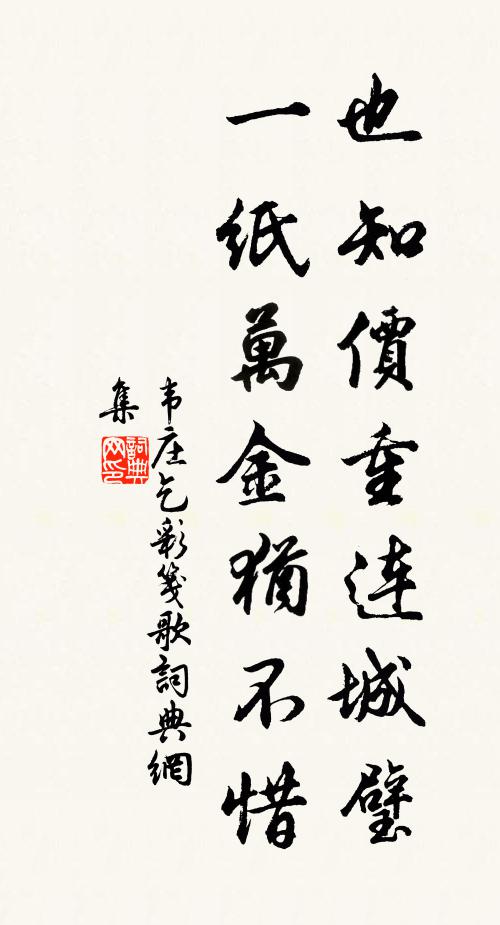 也知價重连城璧
一紙萬金猶不惜
韦庄乞彩箋歌詞典網
集
詞典网印